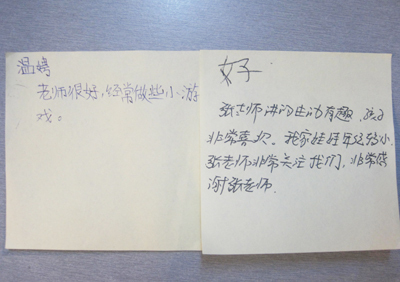 温婷
老师很好,经常做些小游
戏。
好
张老师讲的生动有趣,孩子
非常喜欢。我家娃娃年纪较小,
张老师非常关注我们,非常感
谢张老师.